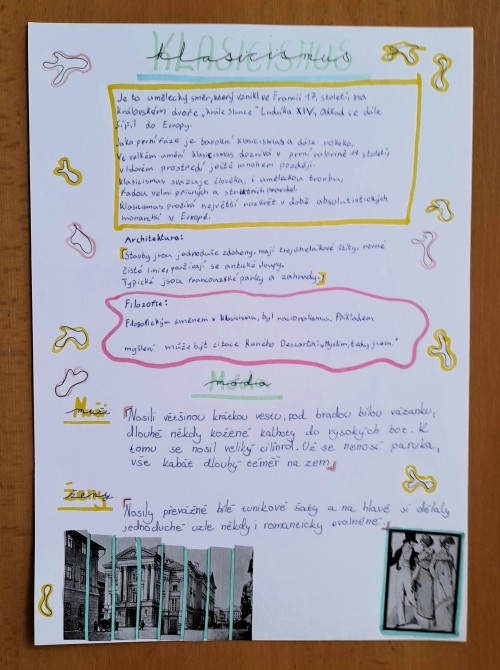 Klasicismus
Je to umělecký směr, který vznikl ve Francii 17. století, na
královském dvoře „krále Slunce" Ludvíka XIV, odkud se dále
šířil do Evropy.
Jako první fáze je barokní klasicismus a dále rokoko,
Ve velkém umění klasicismus doznívá v první polovině 19 století,
v lidovém prostředí ještě mnohem později.
Klasicismus svazuje člověka, i uměleckou tvorbu,
řadou velmi přísných a striktních pravidel.
Klasicismus prožívá největší rozkvět v době absolutistických
monarchií v Evropě.
Architektura:
Stavby jsou jednoduše zdobeny, mají trojúhelníkové štíty, rovné
čisté linie, používají se antické sloupy.
Typické jsou francouzské parky a zahrady.
Filozofie:
Filosofickým směrem v klasicismu, byl racionalismus. Příkladem
myšlení může být citace Reného Descarta: „Myslím, tedy jsem."
móda
muži
Nosili většinou krátkou vestu, pod bradou bílou vázanku,
dlouhé někdy kožené kalhoty do vysokých bot. K
tomu se nosil veliký cilindr. Už se nenosí paruka,
vše kabát dlouhý téměř na zem
ženy
Nosily převážně bílé tunikové šaty a na hlavě si dělaly
jednoduché uzle někdy i romanticky uvolněné.